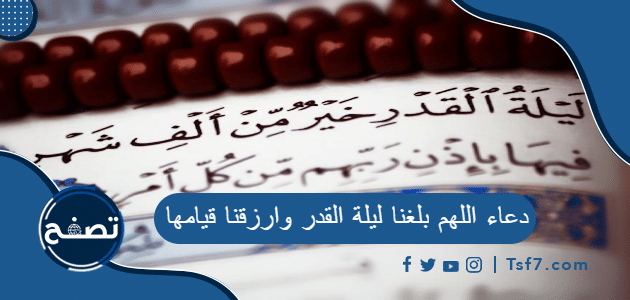 لَيْلَةُ ٱلْقَدْرِ خَيْرٌ مِّنْ أَلْفِ شَهْرٍ
فِيهَا بِإِذْنِ رَبِّهِم مِّن كُلِّ أَمْرٍ
دعاء اللهم بلغنا ليلة القدر وارزقنا قيامها
تصفح
| Tsf7.com